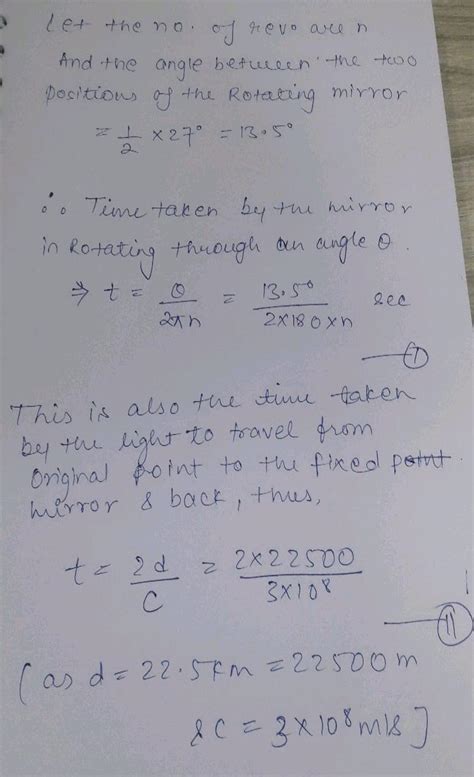 Let the no. of revo are n
And the angle between the two
positions of the Rotating mirror
= 1/2 × 27° = 13.5°
∴ Time taken by the mirror
in Rotating through an angle θ.
⇒ t = θ/2πn = 13.5°/2×180×n sec
— I
This is also the time taken
by the light to travel from
Original point to the fixed point
mirror & back, thus,
t = 2d/C = 2×22500/3×10⁸
— II
(as d = 22.5km = 22500m
& C = 3×10⁸m/s]